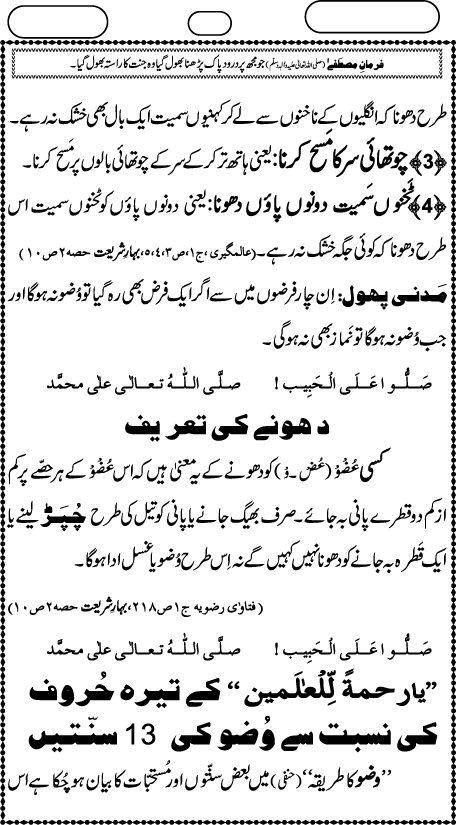 فرمانِ مصطفےٰ (صلی اللہ تعالیٰ علیہ واٰلہ وسلم) جو مجھ پر درود پاک پڑھنا بھول گیا وہ جنت کا راستہ بھول گیا۔
طرح دھونا کہ انگلیوں کے ناخنوں سے لے کر کہنیوں سمیت ایک بال بھی خشک نہ رہے۔
﴿3﴾ چوتھائی سر کا مَسْح کرنا: یعنی ہاتھ تر کر کے سر کے چوتھائی بالوں پر مَسْح کرنا۔
﴿4﴾ ٹَخنوں سَمیت دونوں پاؤں دھونا: یعنی دونوں پاؤں کو ٹخنوں سمیت اس
طرح دھونا کہ کوئی جگہ خشک نہ رہے۔ (عالمگیری، ج۱، ص۳،۴،۵، بہارِ شریعت حصہ۲ ص۱۰)
مَدَنی پھول: اِن چار فرضوں میں سے اگر ایک فرض بھی رہ گیا تو وُضو نہ ہوگا اور
جب وُضو نہ ہوگا تو نَماز بھی نہ ہوگی۔
صَلُّوا عَلَی الْحَبِیب! صلَّی اللّٰہُ تعالٰی علٰی محمَّد
دھونے کی تعریف
کسی عُضْوْ (عُضْ۔وْ) کو دھونے کے یہ معنیٰ ہیں کہ اس عُضْوْ کے ہر حصّے پر کم
از کم دو قطرے پانی بہ جائے۔ صرف بھیگ جانے یا پانی کو تیل کی طرح چُپَڑ لینے یا
ایک قَطرہ بہ جانے کو دھونا نہیں کہیں گے نہ اِس طرح وُضو یا غسل ادا ہوگا۔
(فتاوٰی رضویہ ج۱ ص۲۱۸، بہارِ شریعت حصہ۲ ص۱۰)
صَلُّوا عَلَی الْحَبِیب! صلَّی اللّٰہُ تعالٰی علٰی محمَّد
”یا رحمۃً لِّلْعٰلَمین“ کے تیرہ حُروف
کی نسبت سے وُضو کی 13 سنّتیں
”وضو کا طریقہ“ (حنفی) میں بعض سنّتوں اور مُستَحَبّات کا بیان ہو چُکا ہے اس